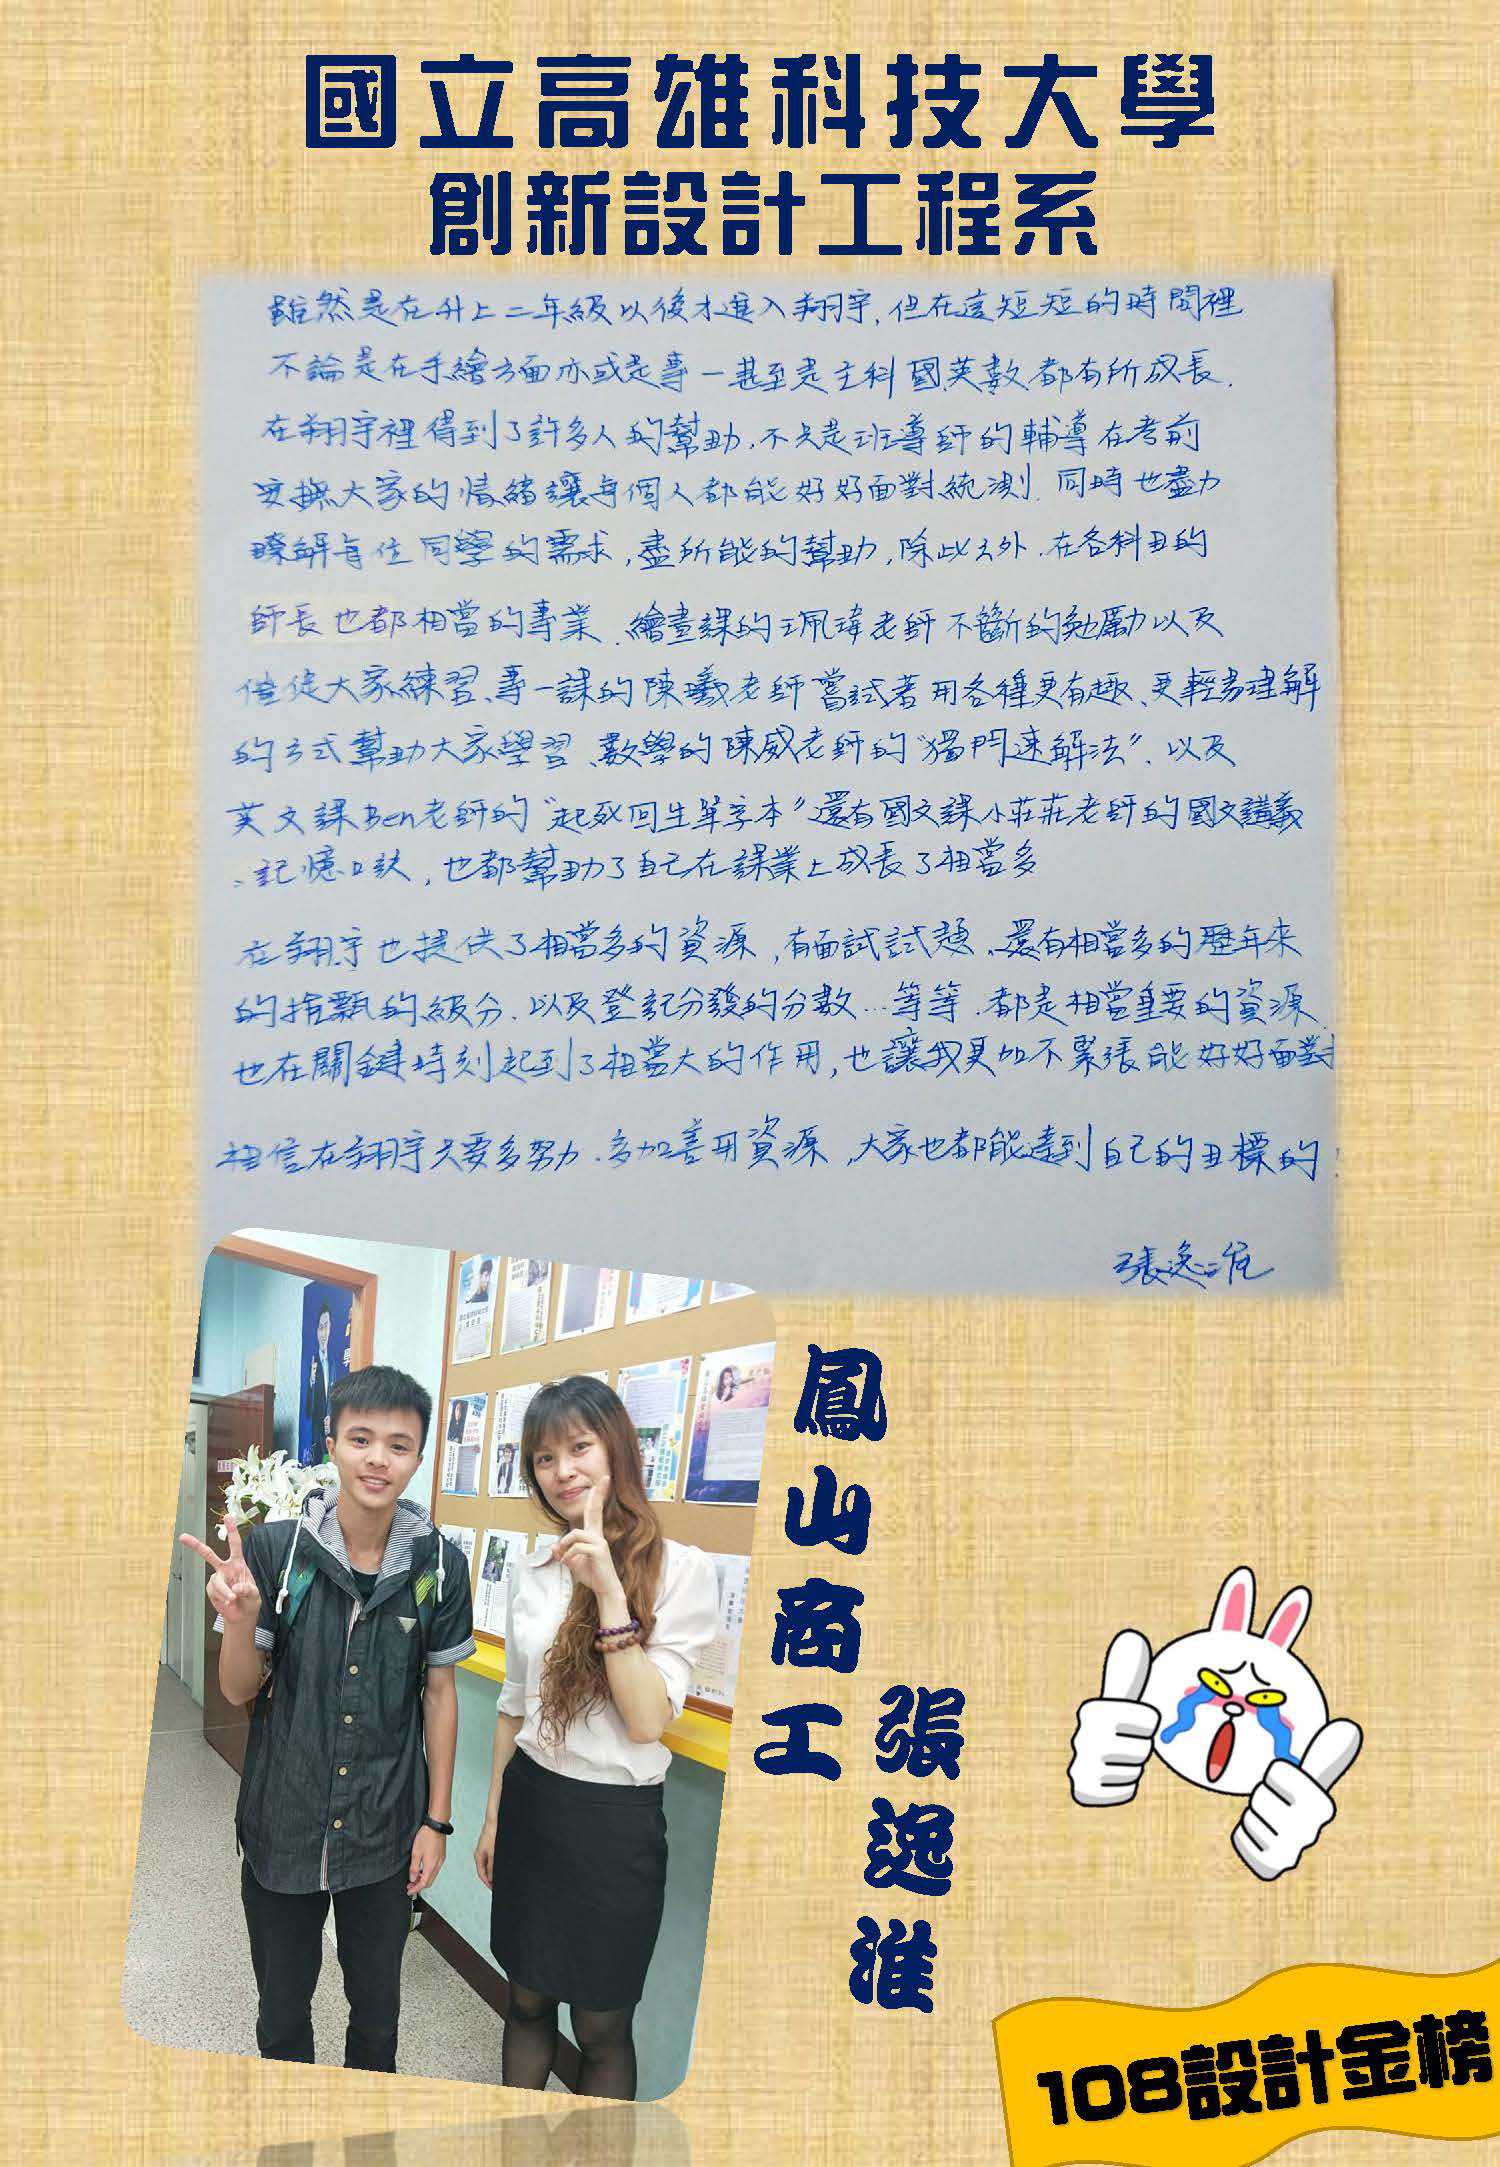 國立高雄科技大學
創新設計工程系
雖然是在升上二年級以後才進入翔宇,但在這短短的時間裡
不論是在手繪方面亦或是專一甚至是主科國英數都有所成長.
在翔宇裡得到了許多人的幫助.不只是班導師的輔導在考前
安撫大家的情緒讓每個人都能好好面對統測.同時也盡力
瞭解每位同學的需求,盡所能的幫助,除此之外.在各科目的
師長也都相當的專業.繪畫課的珮瑋老師不斷的勉勵以及
催促大家練習、專一課的陳曦老師嘗試著用各種更有趣、更輕易理解
的方式幫助大家學習、數學的陳威老師的"獨門速解法"、以及
英文課Ben老師的"起死回生單字本"還有國文課小莊莊老師的國文講義
、記憶口訣,也都幫助了自己在課業上成長了相當多
在翔宇也提供了相當多的資源,有面試試題、還有相當多的歷年來
的推甄的級分.以及登記分發的分數...等等.都是相當重要的資源
也在關鍵時刻起到了相當大的作用,也讓我更加不緊張能好好面對
相信在翔宇只要多努力.多加善用資源,大家也都能達到自己的目標的
張逸淮
鳳山商工
張逸淮
108設計金榜